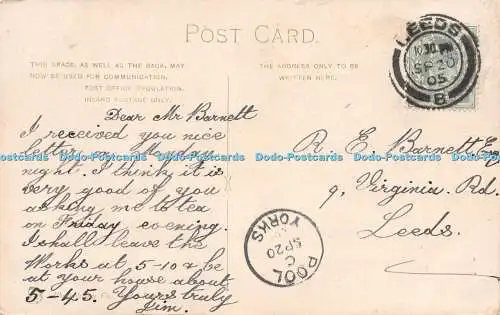 POST CARD.
THIS SPACE, AS WELL AS THE BACK, MAY
NOW BE USED FOR COMMUNICATION.
POST OFFICE REGULATION.
INLAND POSTAGE ONLY.
THE ADDRESS ONLY TO BE
WRITTEN HERE.
LEEDS
10.30 PM
SP 20
05
8
Dear Mr Barnett
I received you nice
letter on Monday
night. I think it is
very good of you
asking me to tea
on Friday evening.
I shall leave the
Works at 5-10 & be
at your house about
5-45. Yours truly
Jim.
R. E. Barnett Esq
9, Virginia Rd
Leeds.
POOL
C
SP 20
YORKS
Dodo-Postcards Dodo-Postcards Dodo-Postcards Dodo-Postcards Dodo-Postcards